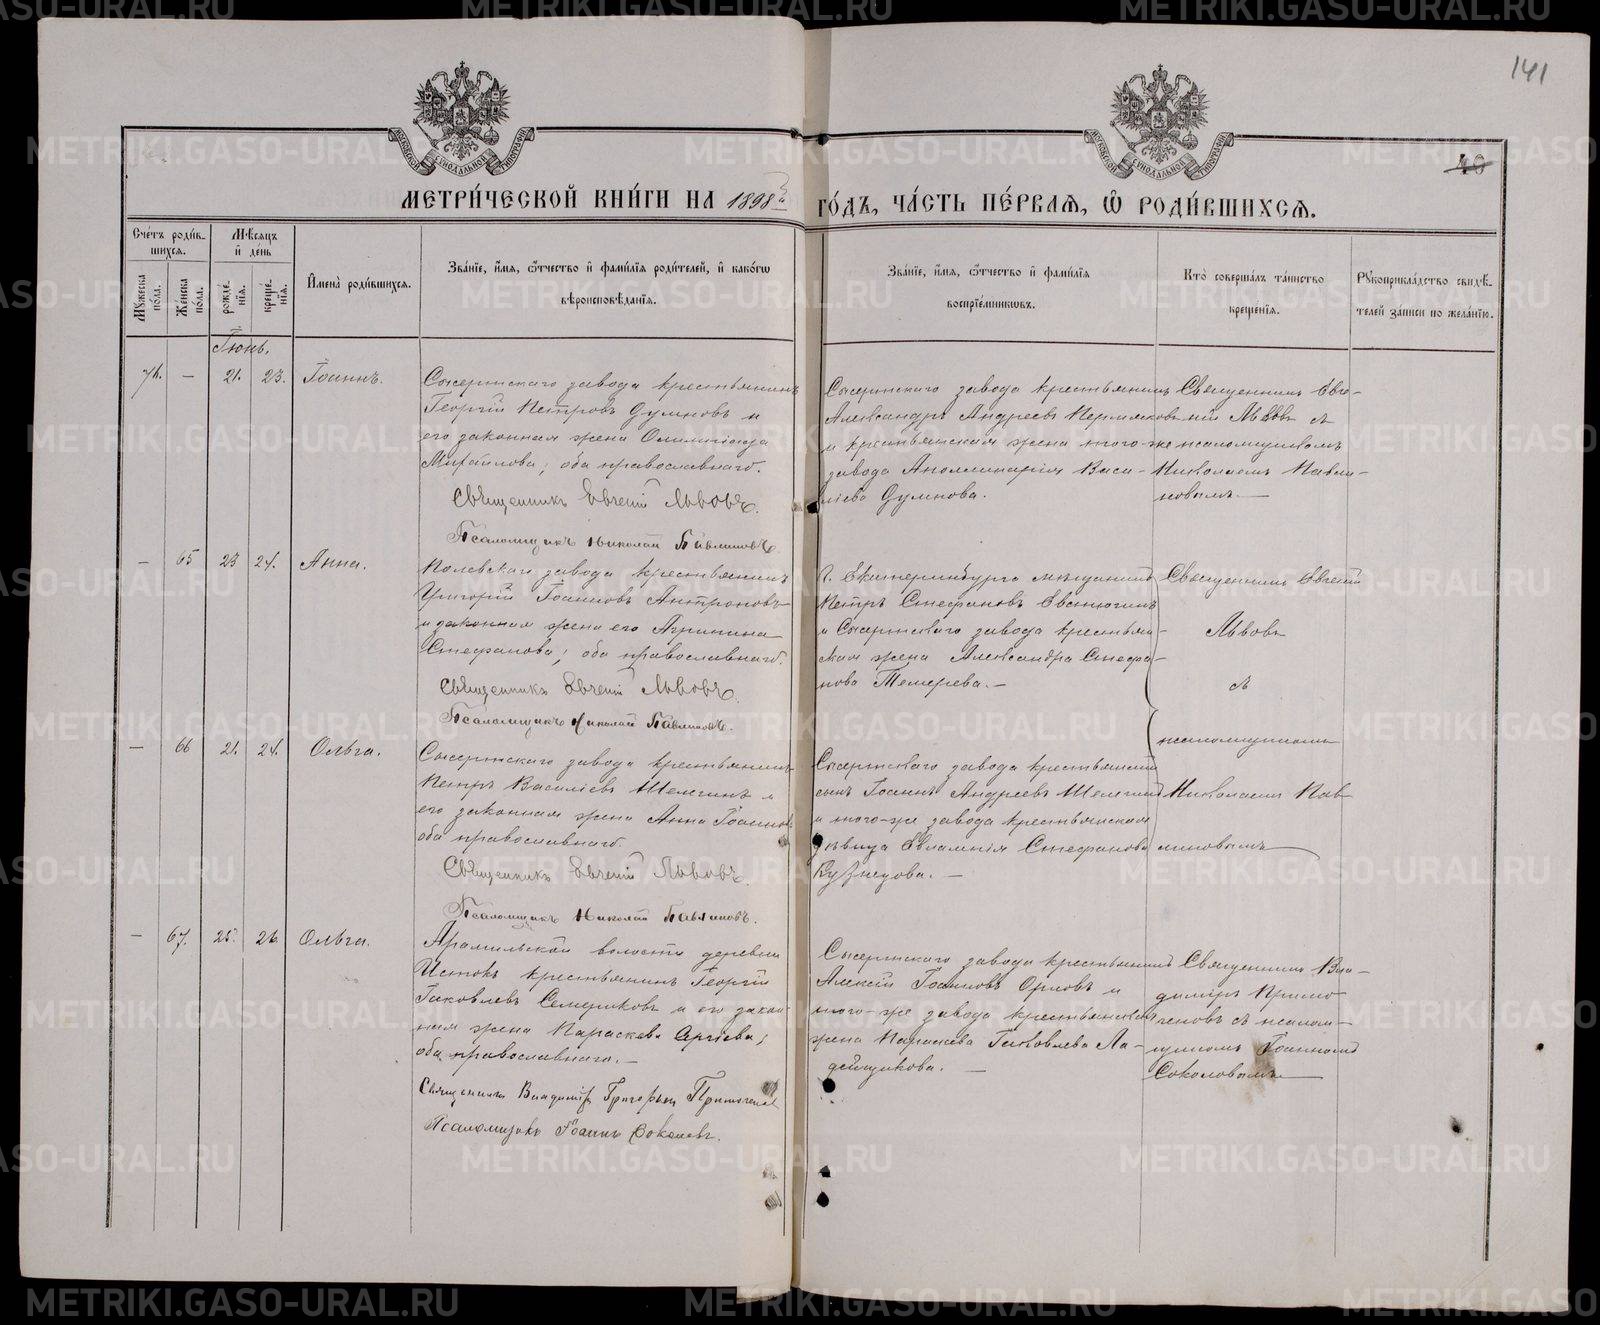 141
40
МЕТРИ́ЧЕСКОЙ КНИ́ГИ НА 1898й ГО́ДЪ, ЧА́СТЬ ПЕ́РВАЯ, Ѡ РОДИ́ВШИХСЯ.
Сче́тъ роди́вшихся.
Мѣ́сяцъ и҆ де́нь
Му́жеска по́ла.
Же́нска по́ла.
рожде́нїя.
креще́нїя.
И҆мена̀ роди́вшихся.
Зва́нїе, и҆́мя, ѻ҆́тчество и҆ фами́лїя роди́телей, и҆ како́гѡ
вѣроисповѣ́данїя.
Зва́нїе, и҆́мя, ѻ҆́тчество и҆ фами́лїя
воспрїе́мниковъ.
Кто̀ соверша́лъ та́инство
креще́нїя.
Рукоприкла́дство свидѣ́-
телей за́писи по жела́нїю.
Іюнь.
71. — 21. 23. Іоаннъ.
Сысертскаго завода крестьянинъ
Георгій Петровъ Думновъ и
его законная жена Олимпіада
Михаилова; оба православнаго.
Священникъ Евгеній Львовъ.
Псаломщикъ Николай Павлиновъ.
Сысертскаго завода крестьянинъ
Александръ Андреевъ Пермяковъ
и крестьянская жена того-же
завода Аполлинарія Васи-
ліева Думнова.
Священникъ Евге-
ній Львовъ съ
псаломщикомъ
Николаемъ Павли-
новымъ.
— 65 23 24. Анна.
Полевскаго завода крестьянинъ
Григорій Іоанновъ Антроповъ
и законная жена его Агрипина
Стефанова; оба православнаго.
Священникъ Евгеній Львовъ.
Псаломщикъ Николай Павлиновъ.
Г. Екатеринбурга мѣщанинъ
Петръ Стефановъ Евсюгинъ
и Сысертскаго завода крестьян-
ская жена Александра Стефа-
нова Темерева. —
Священникъ Евгеній
Львовъ
съ
псаломщикомъ
Николаемъ Пав-
линовымъ
— 66 21. 24. Ольга.
Сысертскаго завода крестьянинъ
Петръ Василіевъ Шелегинъ и
его законная жена Анна Іоаннова
оба православнаго.
Священникъ Евгеній Львовъ.
Псаломщикъ Николай Павлиновъ.
Сысертскаго завода крестьянскій
сынъ Іоаннъ Андреевъ Шелегинъ
и того-же завода крестьянская
дѣвица Евлампія Стефанова
Кузнецова. —
— 67. 25. 26. Ольга.
Арамильской волости деревни
Истокъ крестьянинъ Георгій
Іаковлевъ Семеряковъ и его закон-
ная жена Параскева Сергіева;
оба православнаго. —
Священникъ Владиміръ Григорьевъ
Псаломщикъ Іоаннъ Соколовъ.
Сысертскаго завода крестьянинъ
Алексій Іоанновъ Орловъ и
того-же завода крестьянская
жена Параскева Іаковлева Ла-
дейщикова. —
Священникъ Вла-
диміръ
съ псалом-
щикомъ Іоанномъ
Соколовымъ